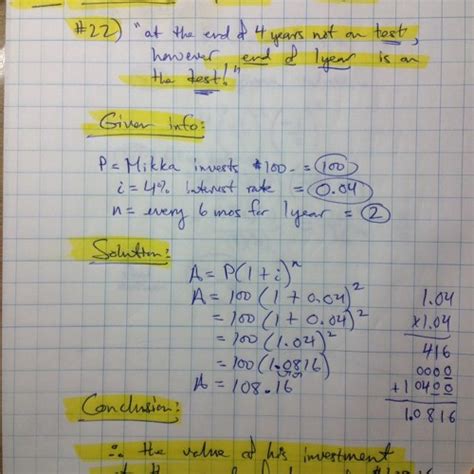 #22) "at the end of 4 years not on test,
however end of 1 year is on
the test!"
Given info:
P = Mikka invests $100- = 100
i = 4% interest rate = 0.04
n = every 6 mos for 1 year = 2
Solution:
A = P(1 + i)^n
A = 100 (1 + 0.04)^2
= 100 (1 + 0.04)^2
= 100 (1.04)^2
= 100 (1.0816)
A = 108.16
1.04
x1.04
416
0000
+10400
1.0816
Conclusion:
∴ the value of his investment